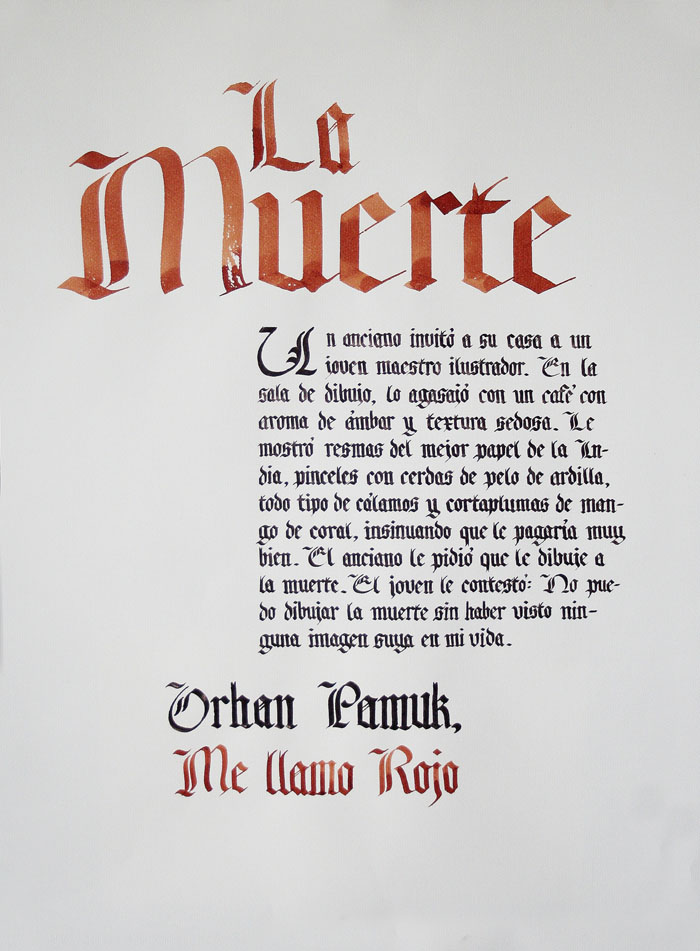 La
Muerte
Un anciano invitó a su casa a un
joven maestro ilustrador. En la
sala de dibujo, lo agasajó con un café con
aroma de ámbar y textura sedosa. Le
mostró resmas del mejor papel de la In-
dia, pinceles con cerdas de pelo de ardilla,
todo tipo de cálamos y cortaplumas de man-
go de coral, insinuando que le pagaría muy
bien. El anciano le pidió que le dibuje a
la muerte. El joven le contestó: No pue-
do dibujar la muerte sin haber visto nin-
guna imagen suya en mi vida.
Orhan Pamuk,
Me llamo Rojo